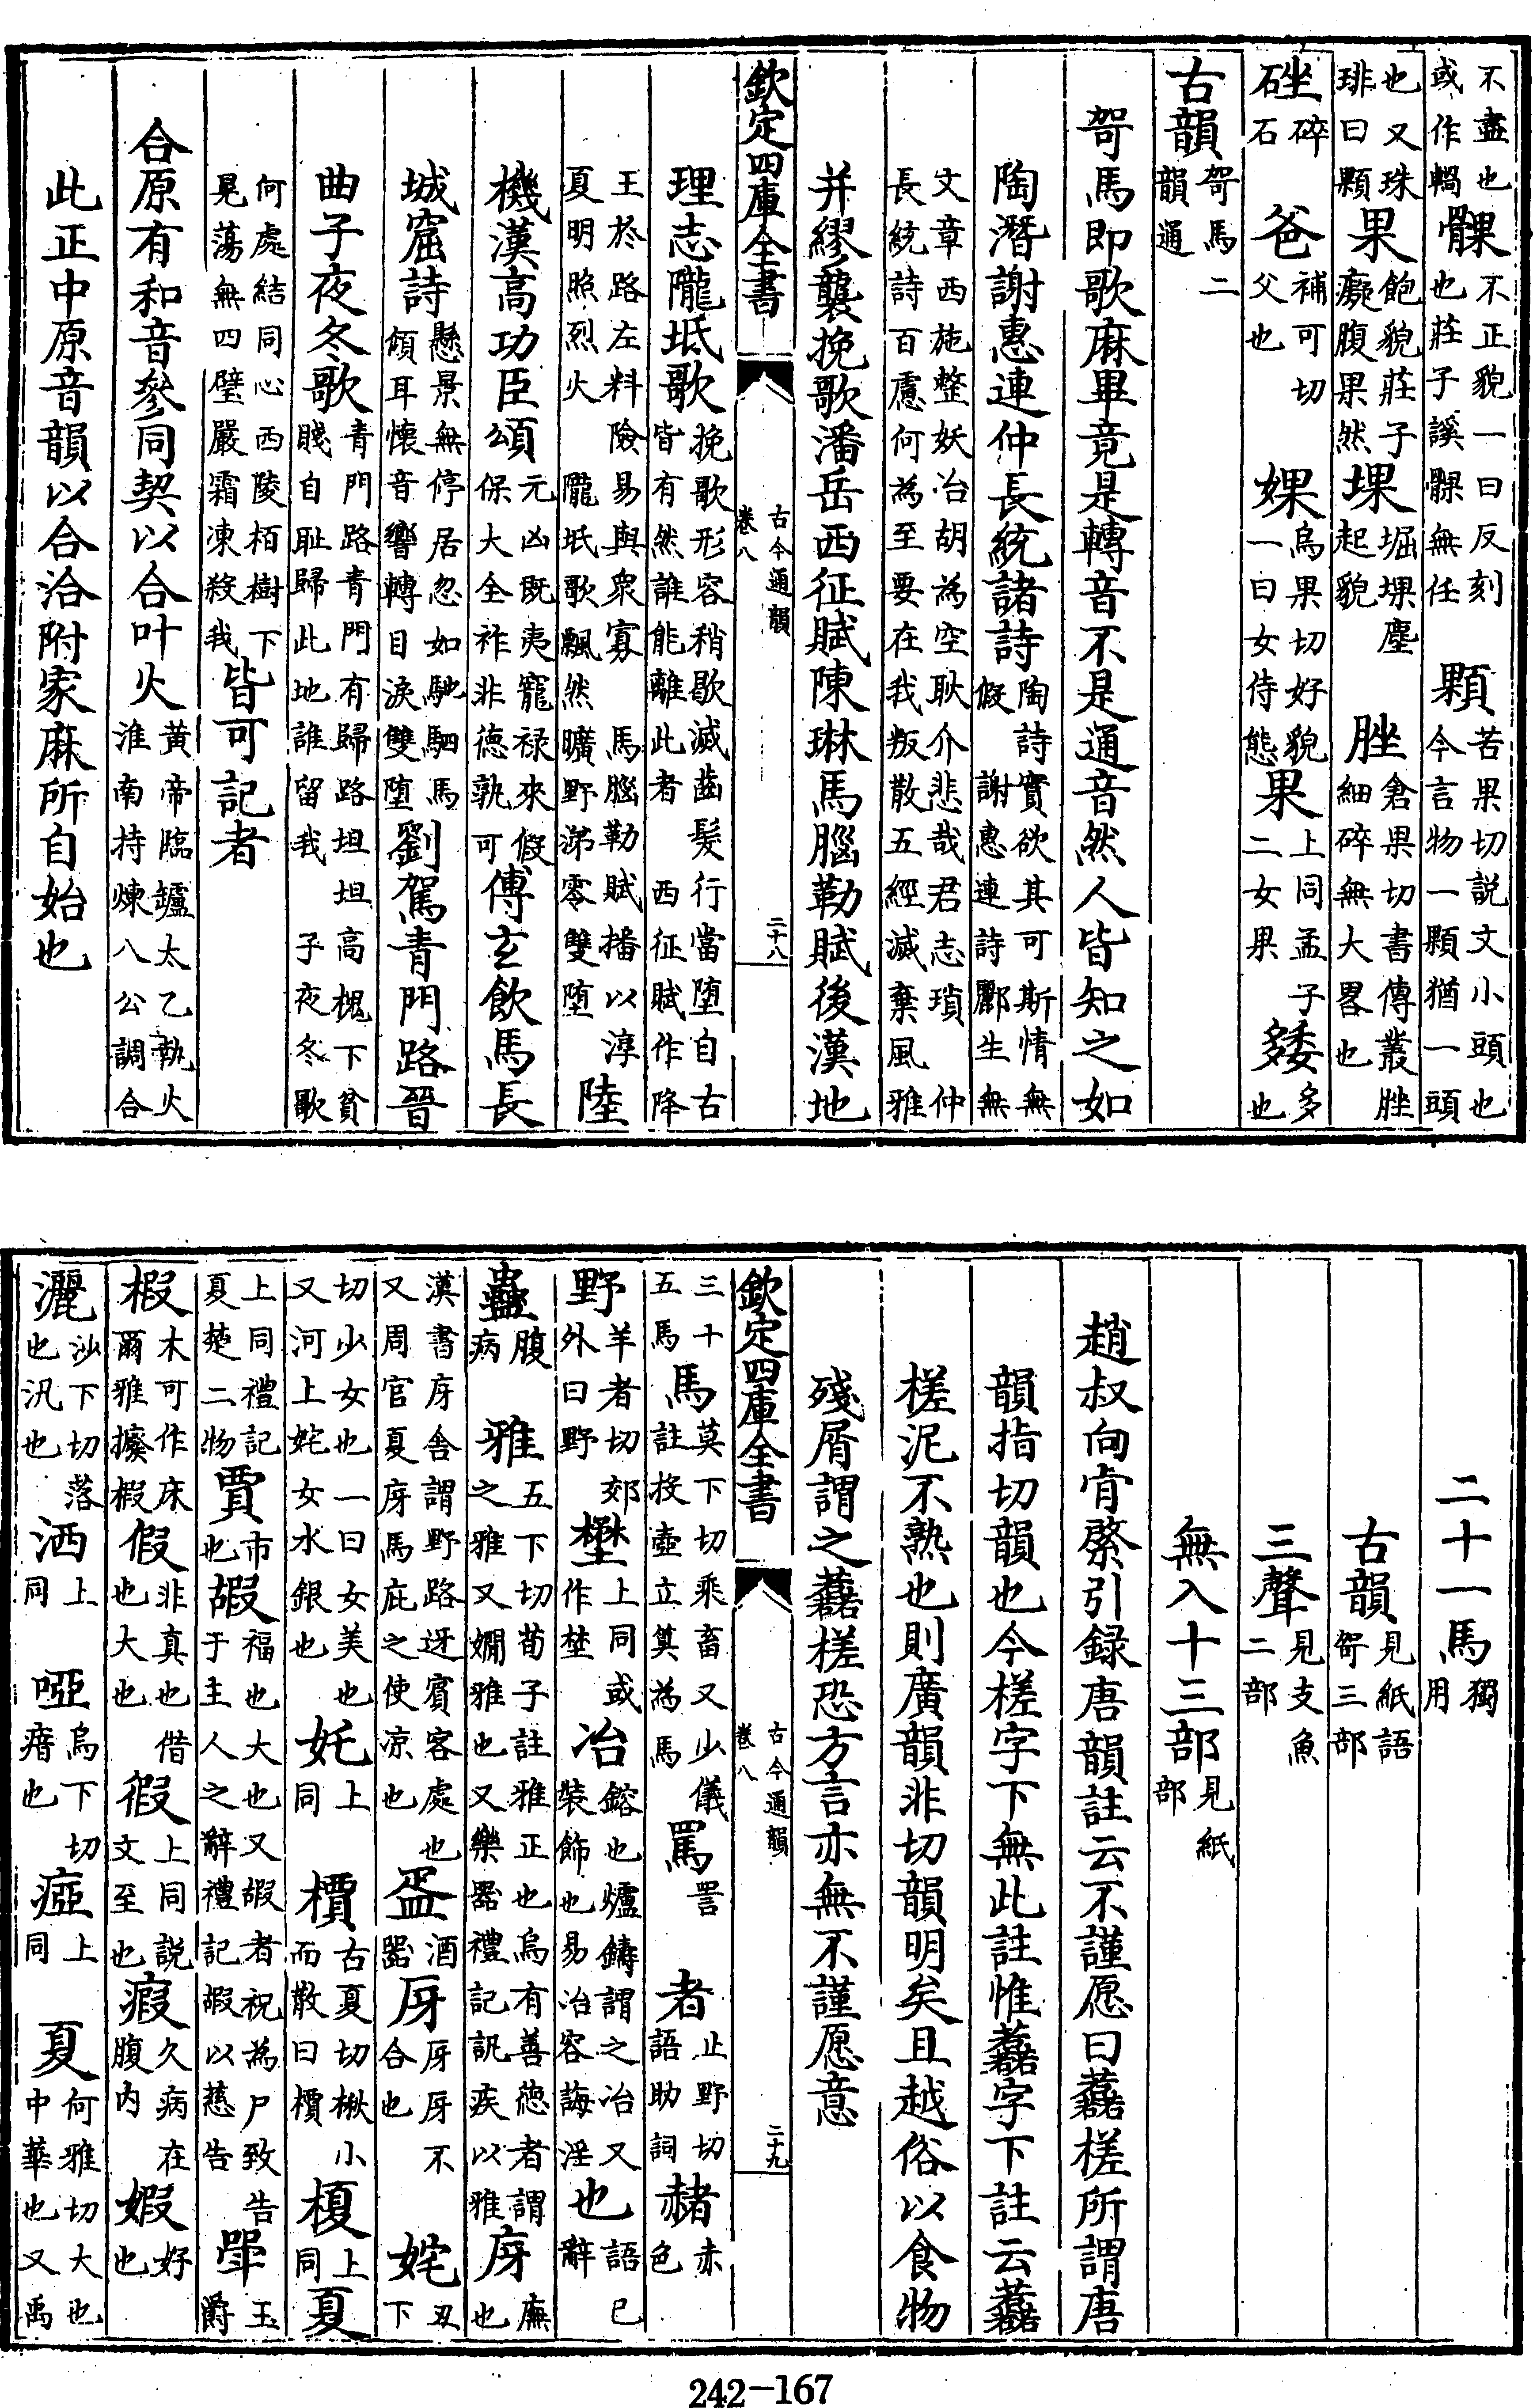 不盡也或作輠 髁不正貌一曰反刻也莊子謑髁無任 顆苦果切説文小頭也今言物一顆猶一頭
也又珠琲曰顆 果飽貌莊子癡腹果然 堁堀堁塵起貌 脞倉果切書傳叢脞細碎無大畧也
硰碎石 爸補可切父也 婐烏果切好貌一曰女侍態 果上同孟子二女果 㛂多也
古韻哿馬二韻通
哿馬即歌麻畢竟是轉音不是通音然人皆知之如
陶潛謝惠連仲長統諸詩陶詩實欲其可斯情無假 謝惠連詩酈生無
文章西施整妖冶胡為空耿介悲哉君志瑣 仲長統詩百慮何為至要在我叛散五經滅棄風雅
并繆襲挽歌潘岳西征賦陳琳馬腦勒賦後漢地
欽定四庫全書 古今通韻 卷八 二十八
理志隴坻歌挽歌形容稍歇滅齒髮行當堕自古皆有然誰能離此者 西征賦作降
王於路左料險易與衆寡 馬腦勒賦播以淳夏明照烈火 隴坻歌飄然曠野涕零雙堕 陸
機漢高功臣頌元凶既夷寵禄來假保大全祚非德孰可 傅玄飲馬長
城窟詩懸景無停居忽如馳駟馬傾耳懷音響轉目淚雙堕 劉駕青門路晉
曲子夜冬歌青門路青門有歸路坦坦高槐下貧賤自耻歸此地誰留我 子夜冬歌
何處結同心西陵栢樹下晃蕩無四壁嚴霜凍殺我 皆可記者
合原有和音參同契以合叶火黃帝臨罏太乙執火淮南持煉八公調合
此正中原音韻以合洽附家麻所自始也
二十一馬獨用
古韻見紙語哿三部
三聲見支魚二部
無入十三部見紙部
趙叔向肯綮引録唐韻註云不謹愿曰藞槎所謂唐
韻指切韻也今槎字下無此註惟藞字下註云藞
槎泥不熟也則廣韻非切韻明矣且越俗以食物
殘屑謂之藞槎恐方言亦無不謹愿意
欽定四庫全書 古今通韻 卷八 二十九
三十五馬 馬莫下切乘畜又少儀註投壺立筭為馬 罵詈 者止野切語助詞 赭赤色
野羊者切郊外曰野 壄上同或作埜 冶鎔也爐鑄謂之冶又裝飾也易冶容誨淫 也語已辭
蠱腹病 雅五下切荀子註雅正也烏有善德者謂之雅又嫺雅也又樂器禮記訊疾以雅 庌廡也
漢書庌舍謂野路迓賓客處也又周官夏庌馬庇之使凉也 盃酒器 厊厊厊不合也 姹丑下
切少女也一曰女美也又河上姹女水銀也 奼上同 檟古夏切楸小而散曰檟 榎上同 夏
上同禮記夏楚二物 賈市也 嘏福也大也又嘏者祝為尸致告于主人之辭禮記嘏以慈告 斝玉爵
椵木可作床爾雅櫠椵 假非真也借也大也 徦上同説文至也 瘕久病在腹内 婽好也
灑沙下切落也汛也 洒上同 啞烏下切瘖也 瘂上同 夏何雅切大也中華也又禹
242-167